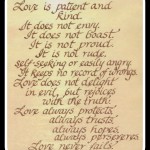 Love is patient and
kind.
It does not envy.
It does not boast.
It is not proud.
It is not rude,
self-seeking or easily angry.
It keeps no record of wrongs.
Love does not delight
in evil, but rejoices
with the truth.
Love always protects,
always trusts,
always hopes,
always perseveres.
Love never fails.